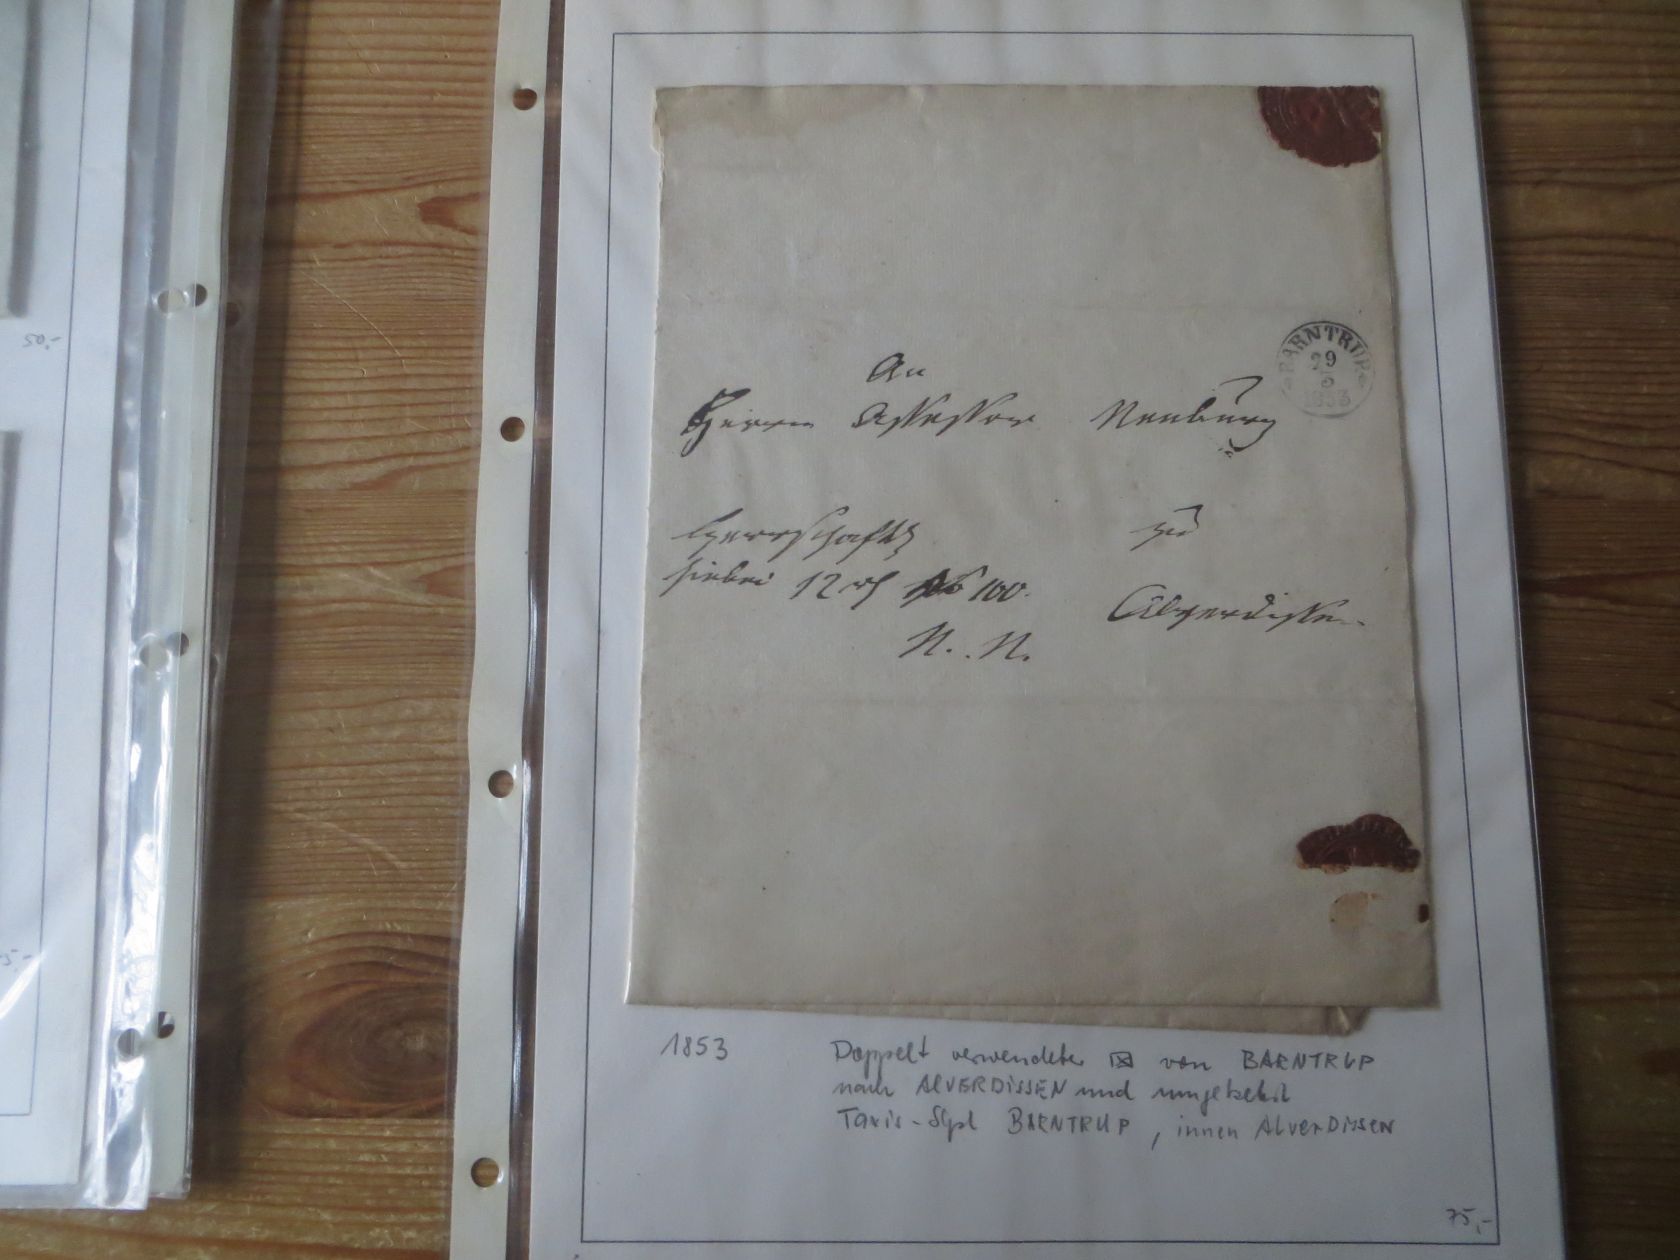 BARNTRUP
29
5
1853
An
Herrn Assessor Neubourg
Herrschaftl. zu
hiebei 12 100.
Alverdissen
N. N.
1853
Doppelt verwendeter ⊠ von BARNTRUP
nach ALVERDISSEN und umgekehrt
Taxis-Stpl BARNTRUP, innen ALVERDISSEN
75,-
50,-
5,-